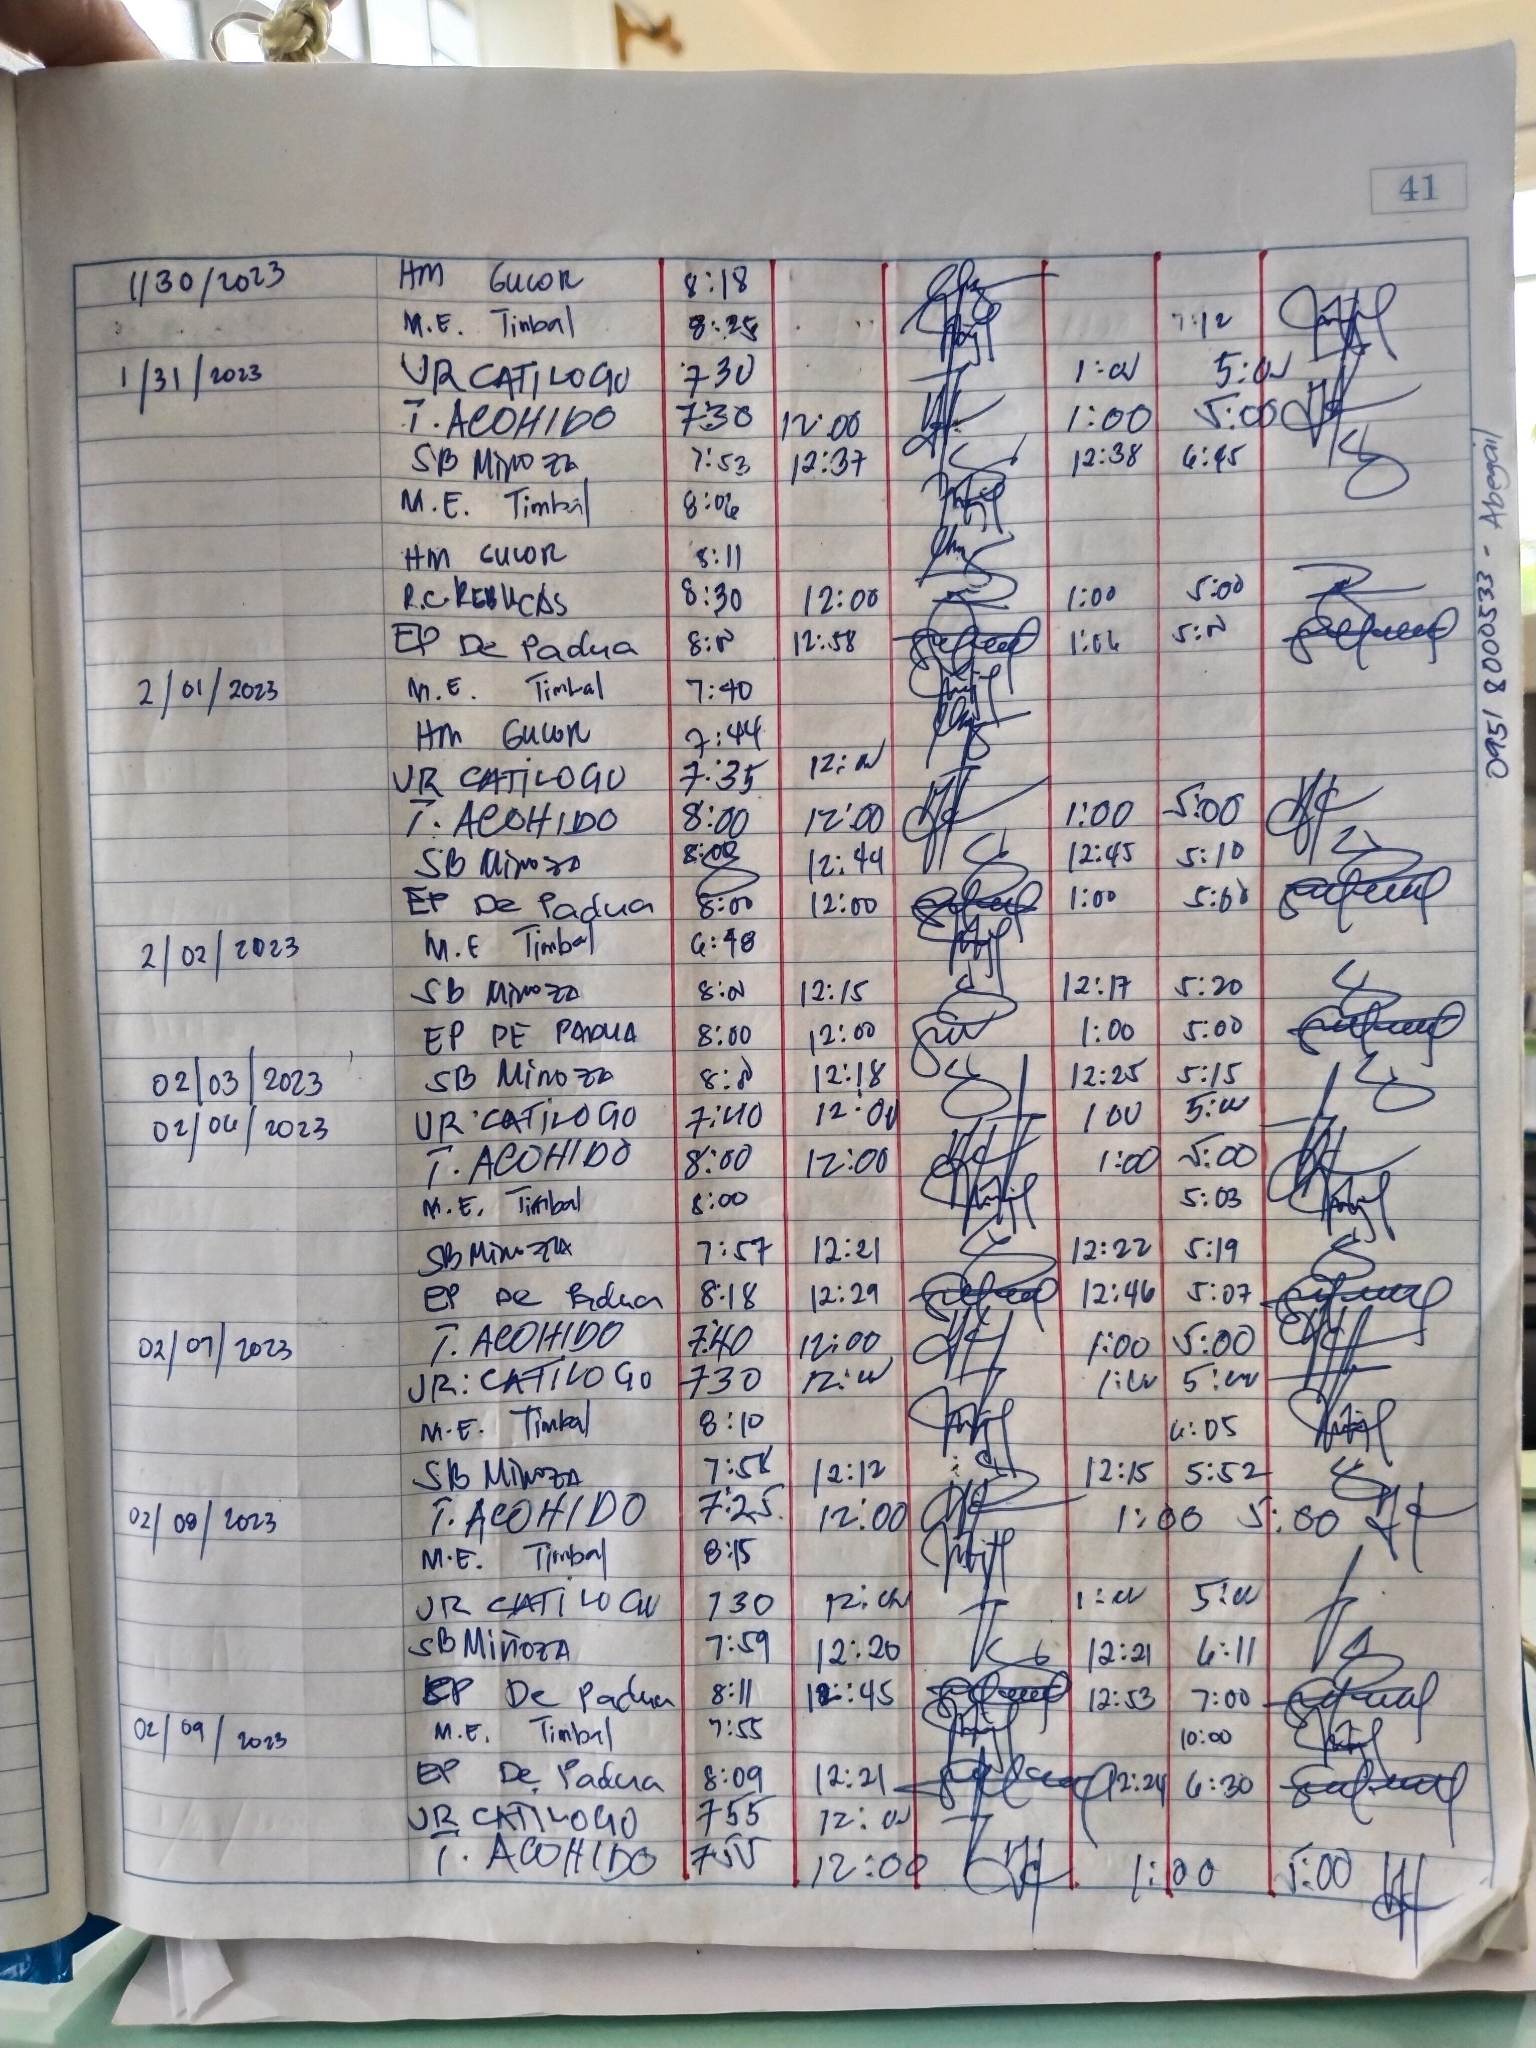 41
1/30/2023 HM GUCOR 8:18
M.E. Timbal 8:25 7:12
1/31/2023 VR CATILOGO 730 1:00 5:00
T. ACOHIDO 7:30 12:00 1:00 5:00
SB MINOZA 7:53 12:37 12:38 6:45
M.E. Timbal 8:06
HM GUCOR 8:11
R.C. REBUCAS 8:30 12:00 1:00 5:00
EP De Padua 8:00 12:58 1:06 5:00
2/01/2023 M.E. Timbal 7:40
HM GUCOR 7:44
VR CATILOGO 7:35 12:00
T. ACOHIDO 8:00 12:00 1:00 5:00
SB Minoza 8:00 12:44 12:45 5:10
EP De Padua 8:00 12:00 1:00 5:00
2/02/2023 M.E Timbal 6:48
SB Minoza 8:00 12:15 12:17 5:20
EP DE PADUA 8:00 12:00 1:00 5:00
02/03/2023 SB Minoza 8:00 12:18 12:25 5:15
02/06/2023 VR CATILOGO 7:40 12:00 1 00 5:00
T. ACOHIDO 8:00 12:00 1:00 5:00
M.E. Timbal 8:00 5:03
SB Minoza 7:57 12:21 12:22 5:19
EP De Padua 8:18 12:29 12:46 5:07
02/07/2023 T. ACOHIDO 7:40 12:00 1:00 5:00
VR: CATILOGO 730 12:00 1:00 5:00
M.E. Timbal 8:10 6:05
SB Minoza 7:58 12:12 12:15 5:52
02/08/2023 T. ACOHIDO 7:25 12:00 1:00 5:00
M.E. Timbal 8:15
VR CATILOGO 730 12:00 1:00 5:00
SB Miñoza 7:59 12:20 12:21 6:11
EP De Padua 8:11 12:45 12:53 7:00
02/09/2023 M.E. Timbal 7:55 10:00
EP De Padua 8:09 12:21 12:24 6:30
VR CATILOGO 755 12:00
T. ACOHIDO 7:55 12:00 1:00 5:00
0951 8000533 - Abegail